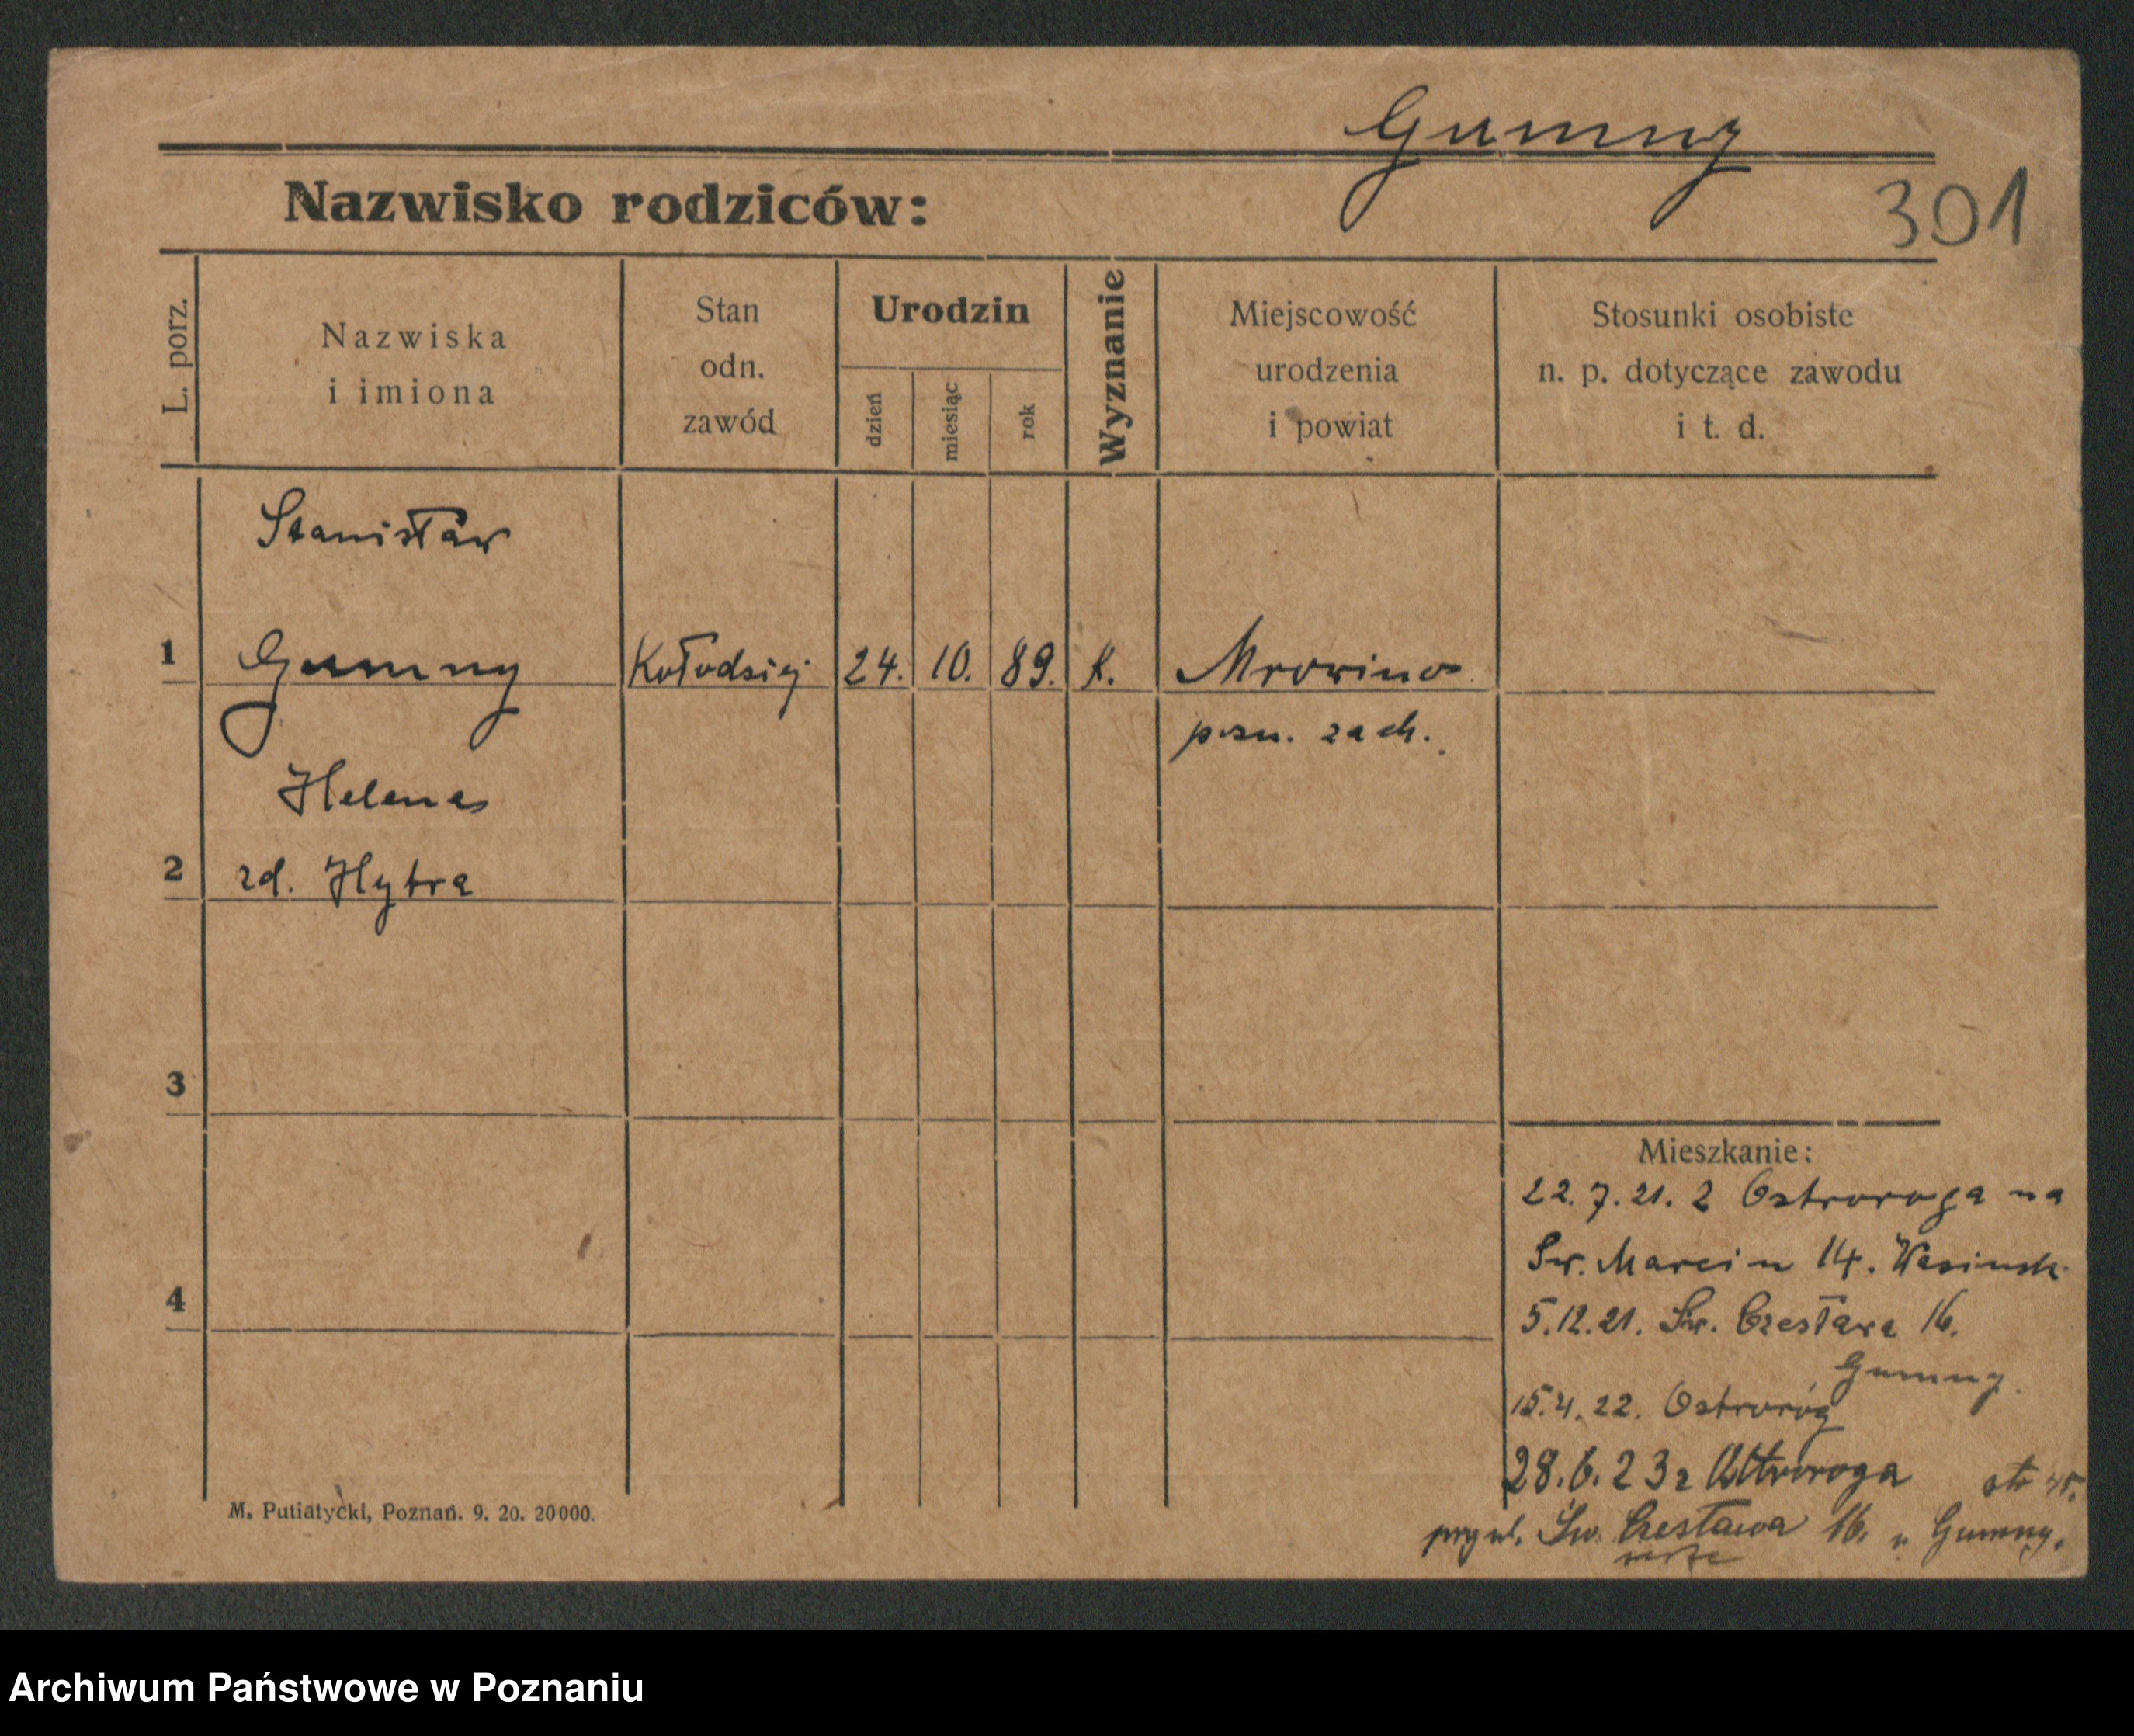 Gumny
301
Nazwisko rodziców:
L. porz.
Nazwiska
i imiona
Stan
odn.
zawód
Urodzin
dzień
miesiąc
rok
Wyznanie
Miejscowość
urodzenia
i powiat
Stosunki osobiste
n. p. dotyczące zawodu
i t. d.
Stanisław
1 Gumny Kołodziej 24. 10. 89. k. Mrowino
pozn. zach.
Helena
2 zd. Hytra
3
Mieszkanie:
22.7.21. z Ostroroga na
Św. Marcin 14.
4
5.12.21. Św. Czesława 16.
Gumny.
15.4.22. Ostroróg
28.6.23 z Ostroroga
Św. Czesława 16. u Gumny.
M. Putiatycki, Poznań. 9. 20. 20000.
Archiwum Państwowe w Poznaniu